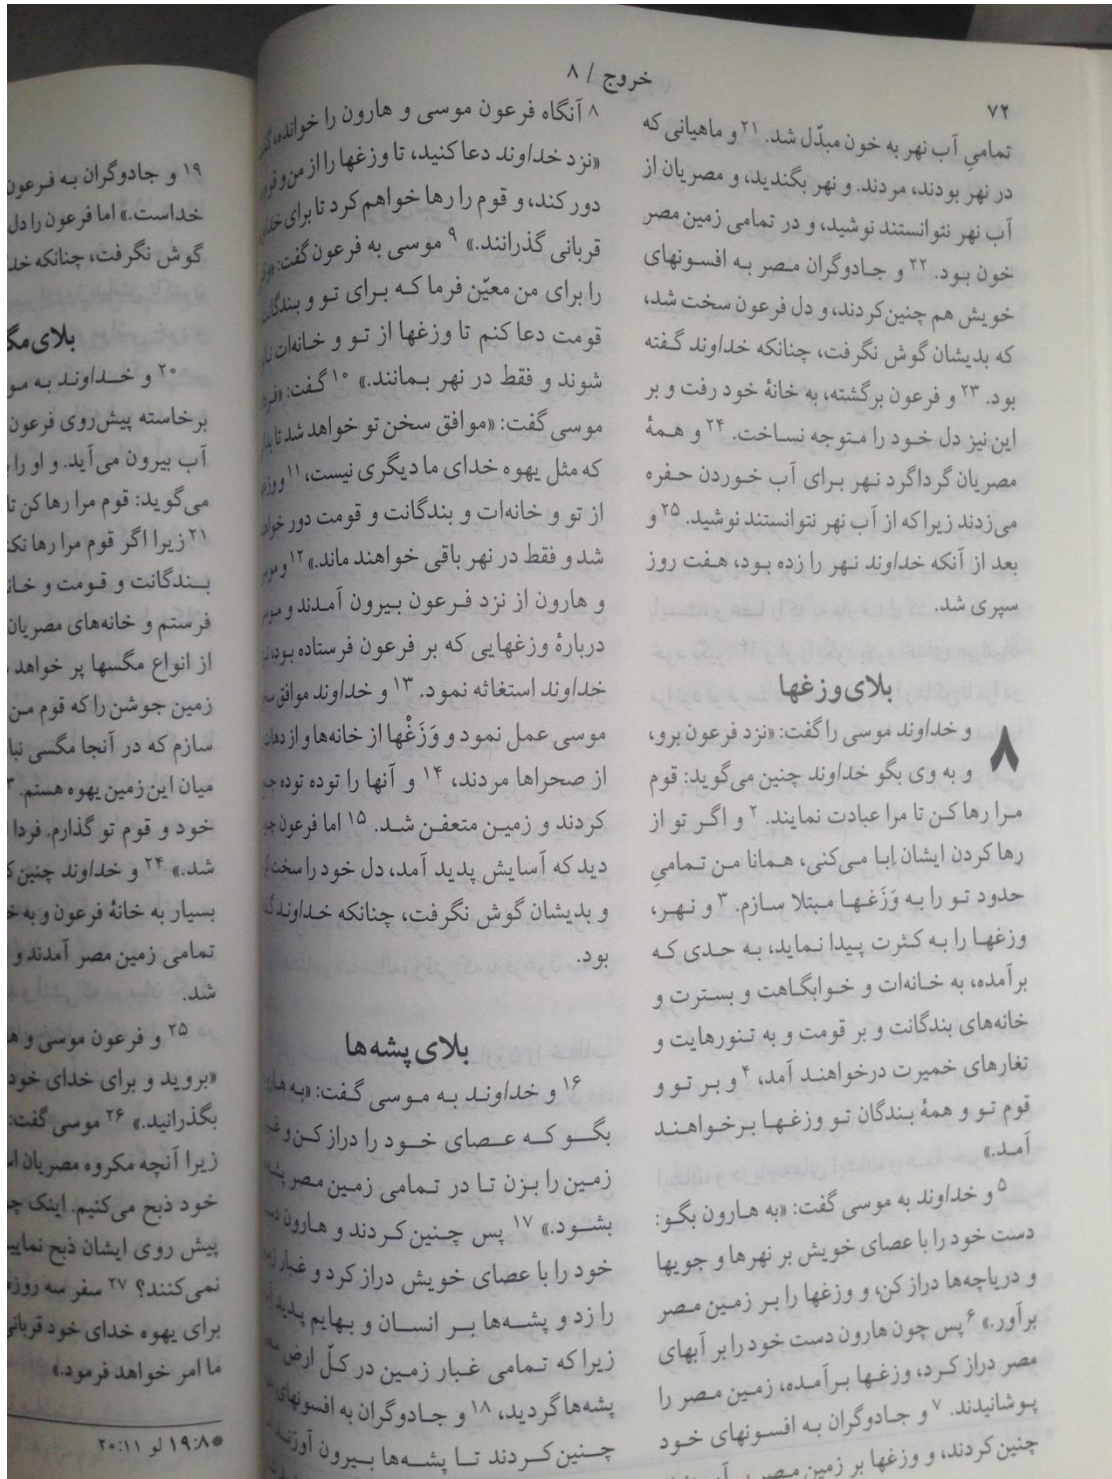 خروج / ۸
۷۲
تمامیِ آب نهر به خون مبدّل شد. ۲۱ و ماهیانی که
در نهر بودند، مردند. و نهر بگندید، و مصریان از
آب نهر نتوانستند نوشید، و در تمامی زمین مصر
خون بود. ۲۲ و جادوگران مصر به افسونهای
خویش هم چنین کردند، و دل فرعون سخت شد،
که بدیشان گوش نگرفت، چنانکه خداوند گفته
بود. ۲۳ و فرعون برگشته، به خانهٔ خود رفت و بر
این نیز دل خود را متوجه نساخت. ۲۴ و همهٔ
مصریان گرداگرد نهر برای آب خوردن حفره
می‌زدند زیرا که از آب نهر نتوانستند نوشید. ۲۵ و
بعد از آنکه خداوند نهر را زده بود، هفت روز
سپری شد.
بلای وزغها
۸
و خداوند موسی را گفت: «نزد فرعون برو،
و به وی بگو خداوند چنین می‌گوید: قوم
مرا رها کن تا مرا عبادت نمایند. ۲ و اگر تو از
رها کردن ایشان اِبا می‌کنی، همانا من تمامیِ
حدود تو را به وَزَغها مبتلا سازم. ۳ و نهر،
وزغها را به کثرت پیدا نماید، به حدی که
برآمده، به خانه‌ات و خوابگاهت و بسترت و
خانه‌های بندگانت و بر قومت و به تنورهایت و
تغارهای خمیرت درخواهند آمد، ۴ و بر تو و
قوم تو و همهٔ بندگان تو وزغها برخواهند
آمد.»
۵ و خداوند به موسی گفت: «به هارون بگو:
دست خود را با عصای خویش بر نهرها و جویها
و دریاچه‌ها دراز کن، و وزغها را بر زمین مصر
برآور.» ۶ پس چون هارون دست خود را بر آبهای
مصر دراز کرد، وزغها برآمده، زمین مصر را
پوشانیدند. ۷ و جادوگران به افسونهای خود
چنین کردند، و وزغها بر زمین مصر
۸ آنگاه فرعون موسی و هارون را خوانده،
«نزد خداوند دعا کنید، تا وزغها را از من و قوم
دور کند، و قوم را رها خواهم کرد تا برای
قربانی گذرانند.» ۹ موسی به فرعون گفت:
را برای من معیّن فرما که برای تو و
قومت دعا کنم تا وزغها از تو و خانه‌ات
شوند و فقط در نهر بمانند.» ۱۰ گفت:
موسی گفت: «موافق سخن تو خواهد شد تا
که مثل یهوه خدای ما دیگری نیست، ۱۱
از تو و خانه‌ات و بندگانت و قومت دور
شد و فقط در نهر باقی خواهند ماند.» ۱۲
و هارون از نزد فرعون بیرون آمدند و
دربارهٔ وزغهایی که بر فرعون فرستاده بود،
خداوند استغاثه نمود. ۱۳ و خداوند موافق
موسی عمل نمود و وَزَغْها از خانه‌ها و از
از صحراها مردند، ۱۴ و آنها را توده توده
کردند و زمین متعفن شد. ۱۵ اما فرعون
دید که آسایش پدید آمد، دل خود را سخت
و بدیشان گوش نگرفت، چنانکه خداوند
بود.
بلای پشه‌ها
۱۶ و خداوند به موسی گفت: «به
بگو که عصای خود را دراز کن و
زمین را بزن تا در تمامی زمین مصر
بشود.» ۱۷ پس چنین کردند و هارون
خود را با عصای خویش دراز کرد و غبار
را زد و پشه‌ها بر انسان و بهایم پدید
زیرا که تمامی غبار زمین در کلّ ارض
پشه‌ها گردید، ۱۸ و جادوگران به افسونهای
چنین کردند تا پشه‌ها بیرون
۱۹ و جادوگران به فرعون
خداست.» اما فرعون را دل
گوش نگرفت، چنانکه
بلای
۲۰ و خداوند به
برخاسته پیش‌روی فرعون
آب بیرون می‌آید. و او را
می‌گوید: قوم مرا رها کن
۲۱ زیرا اگر قوم مرا رها
بندگانت و قومت و
فرستم و خانه‌های مصریان
از انواع مگسها پر خواهد
زمین جوشن را که قوم من
سازم که در آنجا مگسی
میان این زمین یهوه هستم.
خود و قوم تو گذارم. فردا
شد.» ۲۴ و خداوند چنین
بسیار به خانهٔ فرعون و به
تمامی زمین مصر آمدند و
شد.
۲۵ و فرعون موسی و
«بروید و برای خدای خود
بگذرانید.» ۲۶ موسی گفت:
زیرا آنچه مکروه مصریان
خود ذبح می‌کنیم. اینک
پیش روی ایشان ذبح
نمی‌کنند؟ ۲۷ سفر سه
برای یهوه خدای خود
ما امر خواهد فرمود.»
*۱۹:۸ لو ۲۰:۱۱